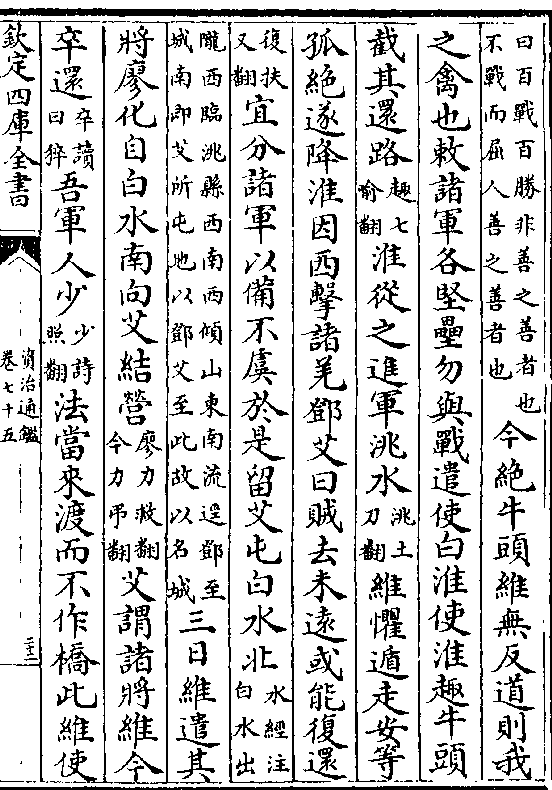 曰百戰百勝非善之善者也
不戰而屈人善之善者也今絶牛頭維無反道則我
之禽也敕諸軍各堅壘勿與戰遣使白淮使淮趣牛頭
截其還路趣七
喻翻淮從之進軍洮水洮土
刀翻維懼遁走安等
孤絶遂降淮因西擊諸羌鄧艾曰賊去未遠或能復還
復扶
又翻宜分諸軍以備不虞於是留艾屯白水北水經注
白水出
隴西臨洮縣西南西傾山東南流逕鄧至
城南即艾所屯地以鄧艾至此故以名城三日維遣其
將廖化自白水南向艾結營廖力救翻
今力弔翻艾謂諸將維今
卒還卒讀
曰猝吾軍人少少詩
照翻法當來渡而不作橋此維使
欽定四庫全書
資治通鑑
卷七十五
二十三